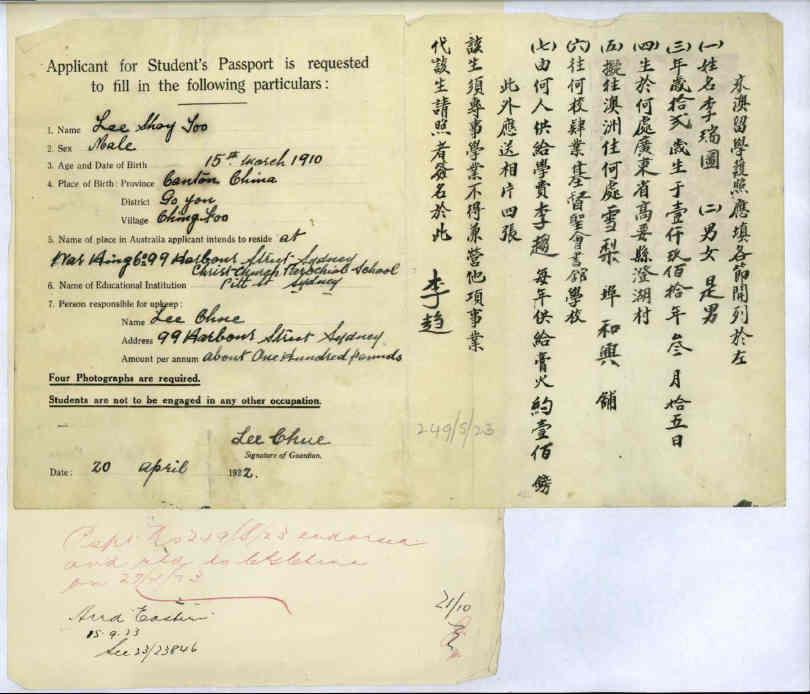 Applicant for Student's Passport is requested
to fill in the following particulars :
1. Name Lee Shoy Too
2. Sex Male
3. Age and Date of Birth 15th March 1910
4. Place of Birth: Province Canton China
District Go you
Village Ching Foo
5. Name of place in Australia applicant intends to reside at
War Hing Co 99 Harbour Street Sydney
Christ Church Parochial School
6. Name of Educational Institution Pitt St Sydney
7. Person responsible for upkeep:
Name Lee Chue
Address 99 Harbour Street Sydney
Amount per annum about One Hundred Pounds
Four Photographs are required.
Students are not to be engaged in any other occupation.
Lee Chue
Signature of Guardian.
Date: 20 April 1922.
來澳留學護照應填各節開列於左
(一)姓名李瑞圖 (二)男女 是男
(三)年歲拾弍歲生于壹仟玖佰拾年叁月拾五日
(四)生於何處廣東省高要縣澄湖村
(五)擬往澳洲住何處雪梨埠和興舖
(六)往何校肄業基督聖會書館學校
(七)由何人供給學費李趙每年供給膏火約壹佰鎊
此外應送相片四張
該生須專事學業不得兼營他項事業
代該生請照者簽名於此 李趙
249/S/23
Cspt No 249/S/23 endorsed
and retd to C.G. China
on 27/8/23
Arrd Eastern
15.9.23
See 23/23846
21/10